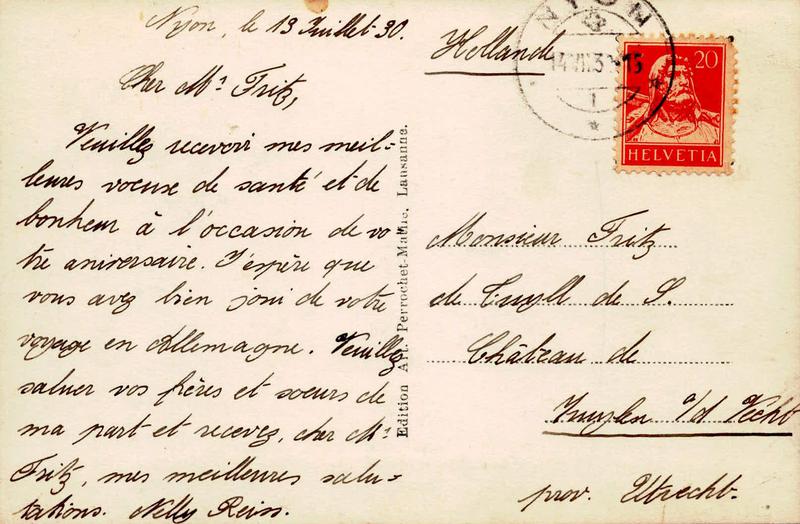 Nyon, le 13 Juillet 30.
Cher Mr Fritz,
Veuillez recevoir mes meil-
leures voeuse de santé et de
bonheur à l'occasion de vo
tre aniversaire. J'espère que
vous avez bien joui de votre
voyage en Allemagne. Veuillez
saluer vos frères et soeurs de
ma part et recevez, cher Mr
Fritz, mes meilleures salu-
tations. Nelly Reiss.
Edition Art. Perrochet-Matile, Lausanne.
Hollande
NYON
1
20
HELVETIA
Monsieur Fritz
de Tuyll de S.
Château de
Zuylen a/d Vecht
prov. Utrecht.